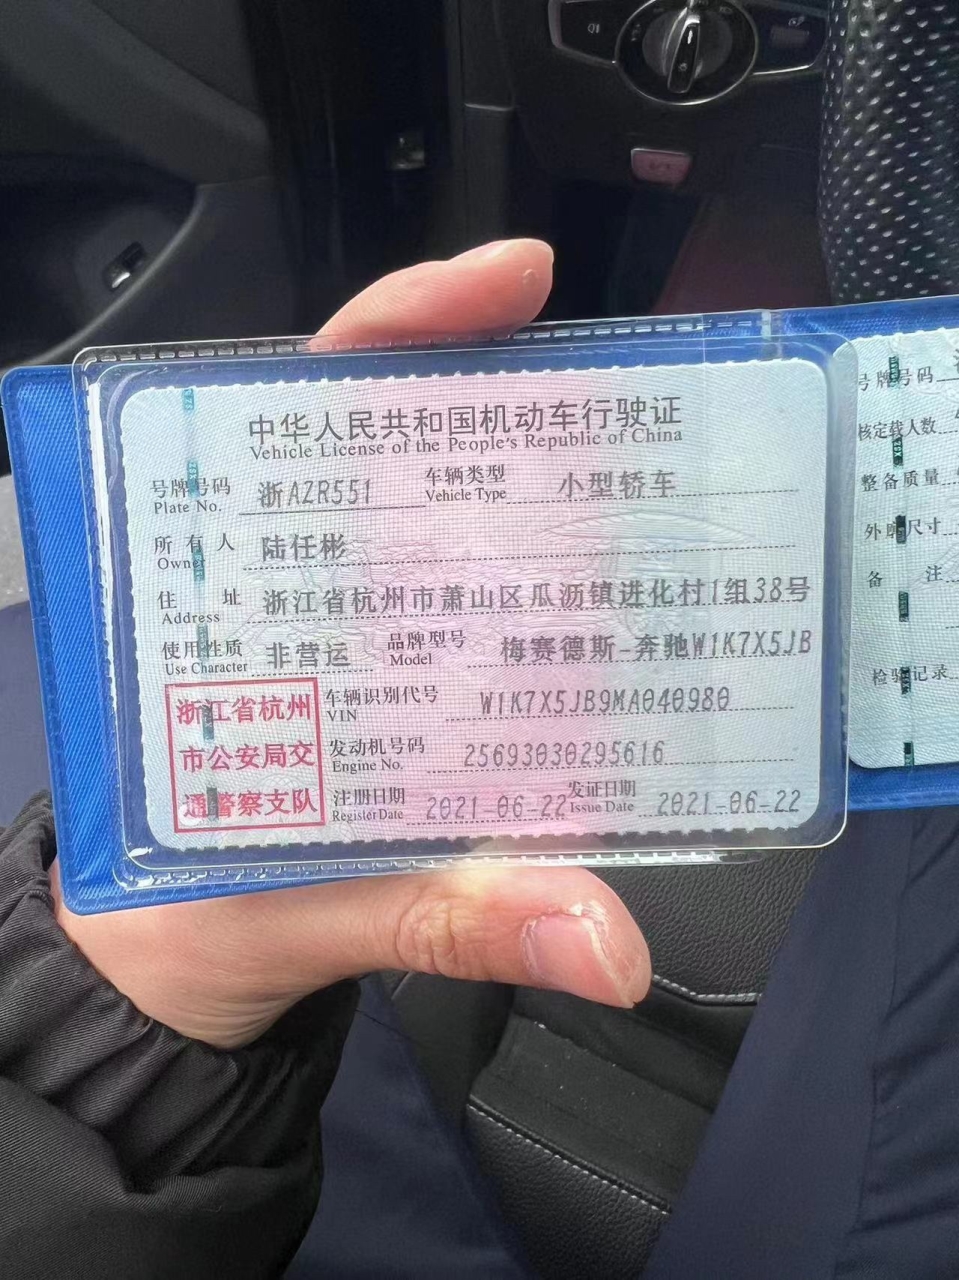 中华人民共和国机动车行驶证
Vehicle License of the People's Republic of China
号牌号码 浙AZR551 车辆类型 小型轿车
Plate No. Vehicle Type
所有人 陆任彬
Owner
住址 浙江省杭州市萧山区瓜沥镇进化村1组38号
Address
使用性质 非营运 品牌型号 梅赛德斯-奔驰W1K7X5JB
Use Character Model
浙江省杭州
市公安局交
通警察支队
车辆识别代号 W1K7X5JB9MA040980
VIN
发动机号码 25693030295616
Engine No.
注册日期 2021-06-22 发证日期 2021-06-22
Register Date Issue Date
号牌号码
核定载人数
整备质量
外廓尺寸
备注
检验记录